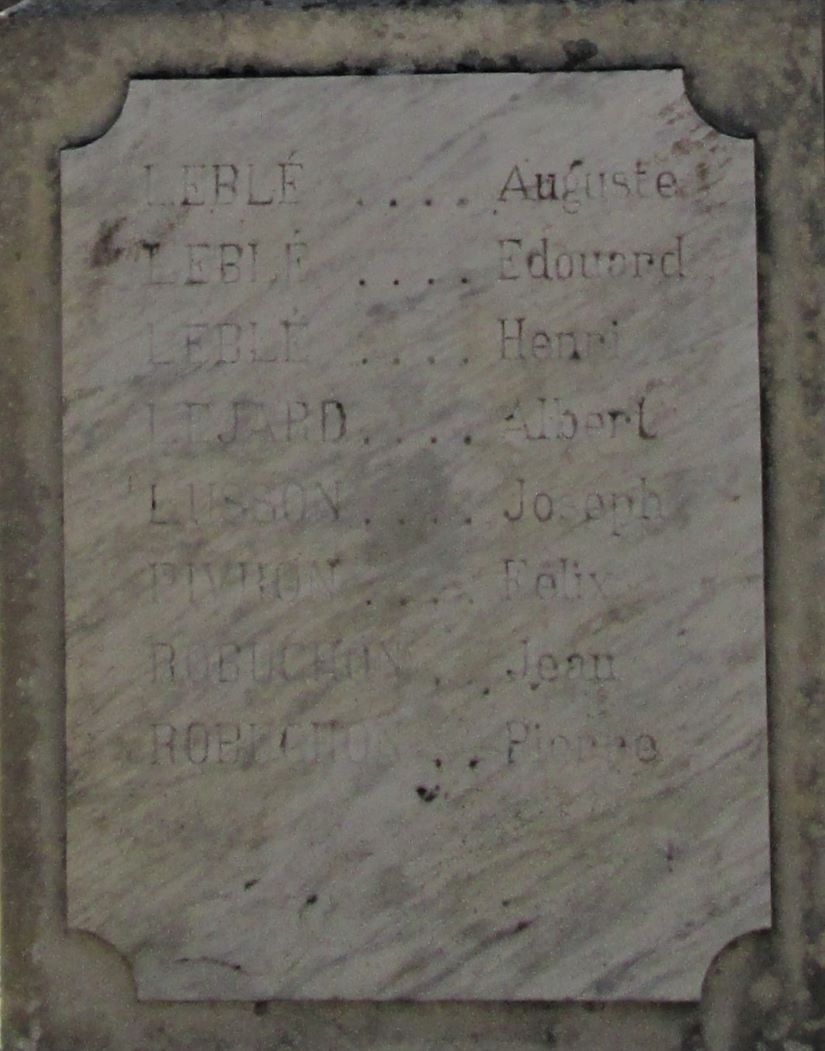 LEBLÉ .... Auguste
LEBLÉ .... Edouard
LEBLÉ .... Henri
LEJARD .... Albert
LUSSON .... Joseph
PIVRON .... Félix
ROBUCHON ... Jean
ROBUCHON .. Pierre